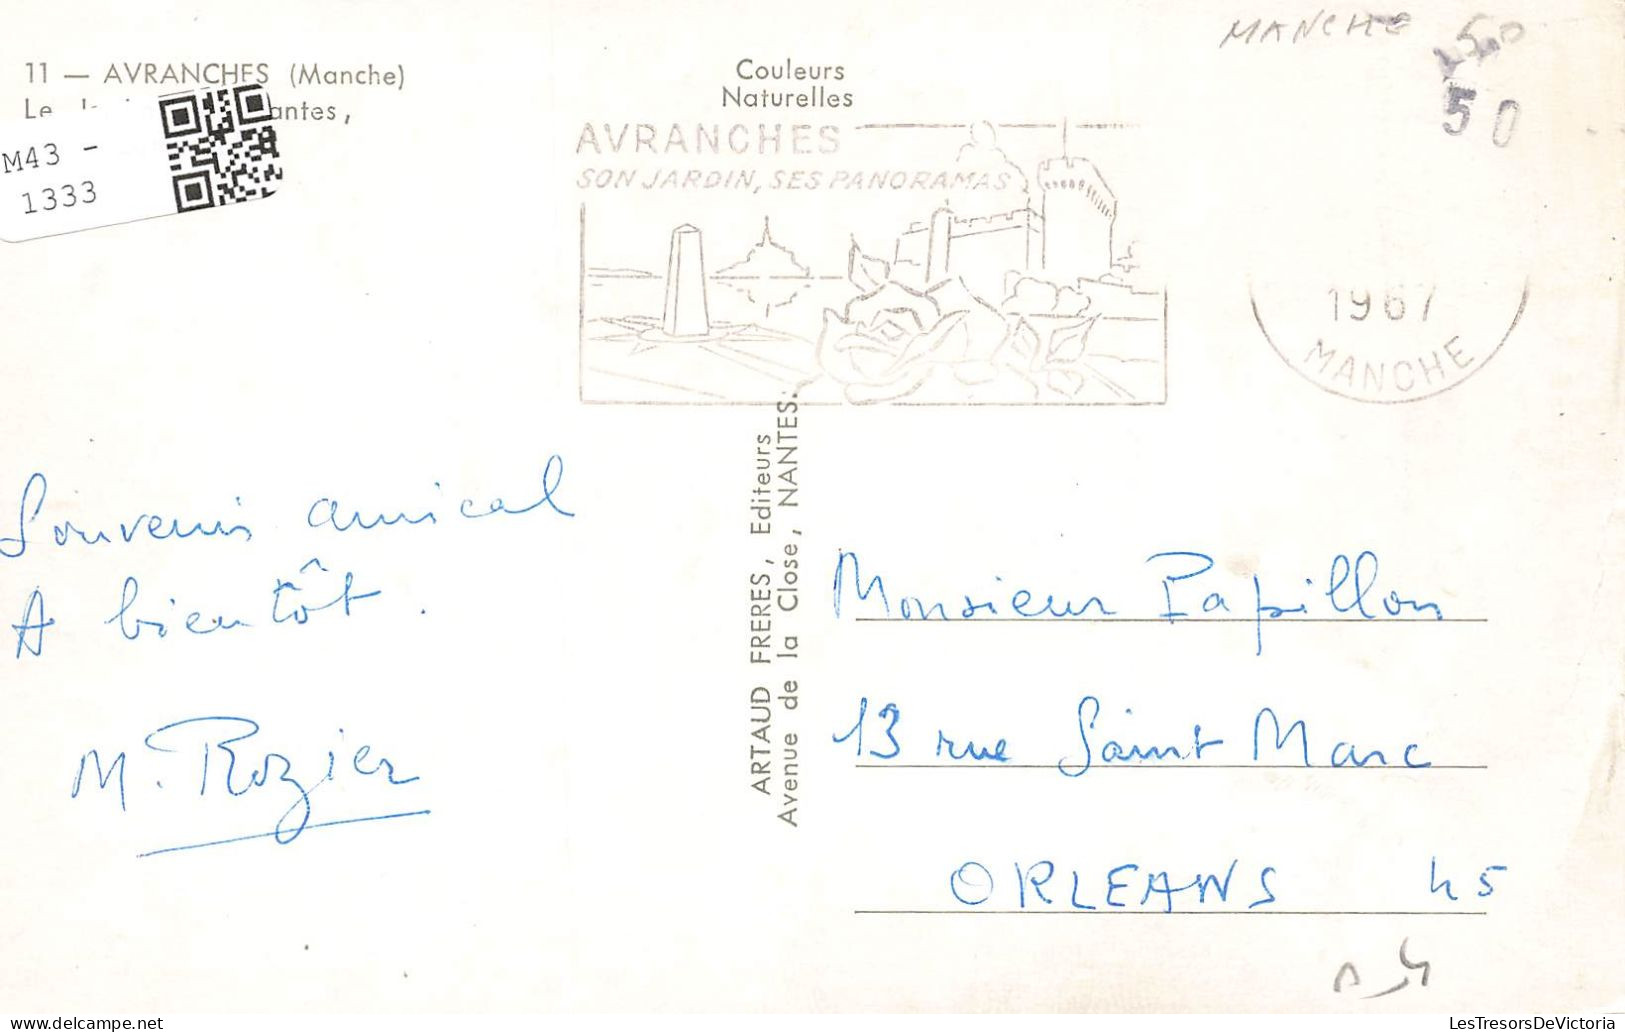 11 — AVRANCHES (Manche)
Le antes,
M43 -
1333
Couleurs
Naturelles
AVRANCHES
SON JARDIN, SES PANORAMAS
MANCHE
50
1967
MANCHE
Souvenir amical
A bientôt.
M. Rozier
ARTAUD FRERES, Editeurs
Avenue de la Close, NANTES.
Monsieur Papillon
13 rue Saint Marc
ORLEANS 45
delcampe.net
LesTresorsDeVictoria